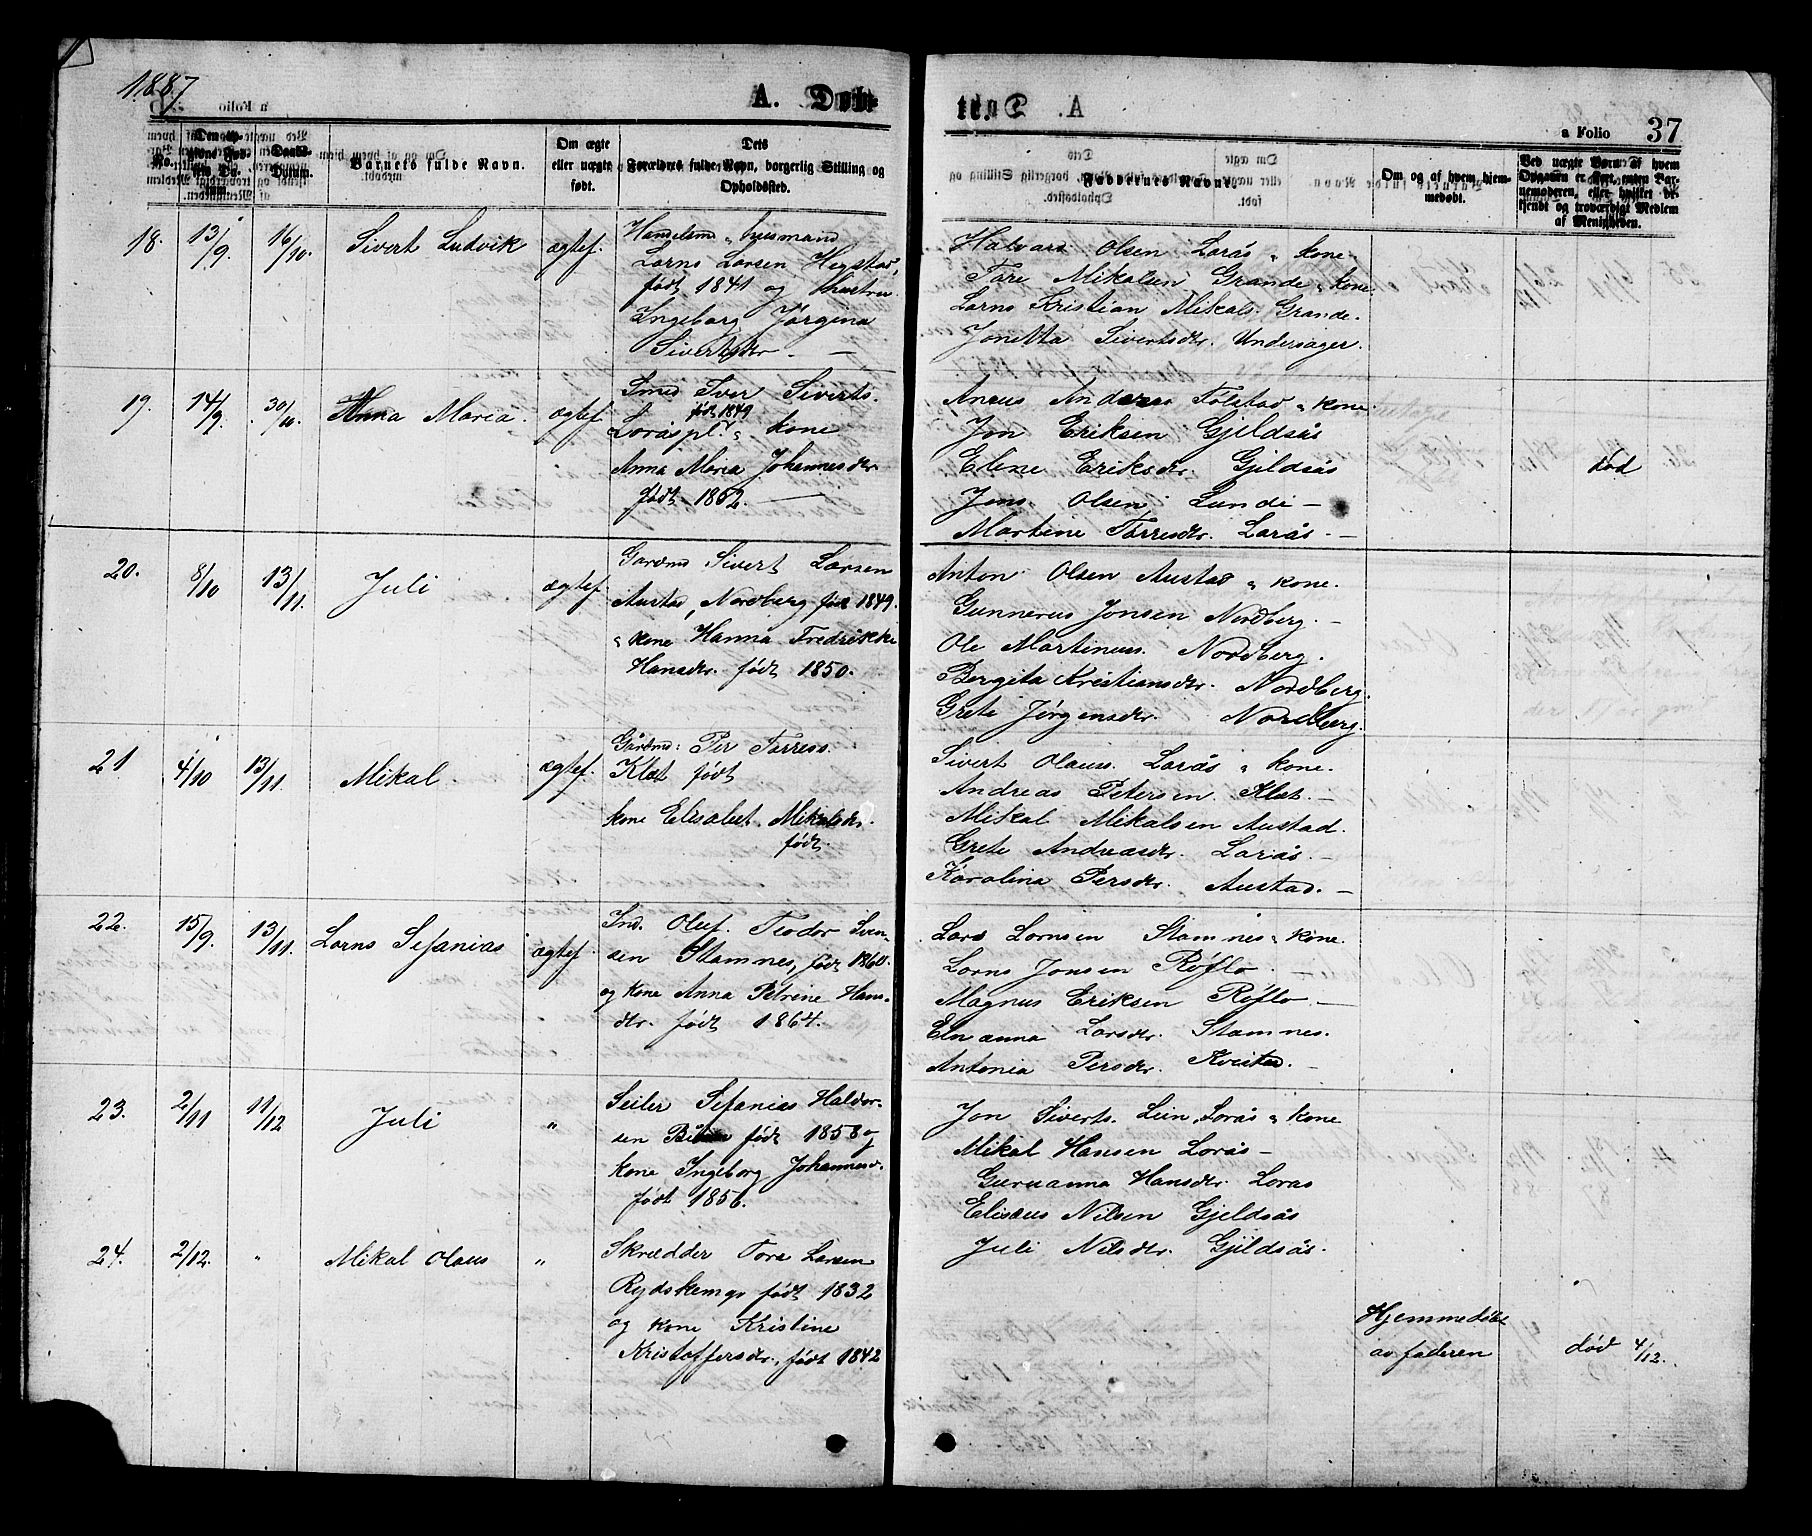 1887
A. Døbte
a Folio 37
No.
Barnets fulde Navn.
Om ægte
eller uægte
født.
Dets
Forældres fulde Navn, borgerlig Stilling og
Opholdssted.
Faddernes Navne.
Om og af hvem hjem-
medøbt.
Ved uægte Børn: af hvem
Opgaven er skeet, enten Bar-
nemoderen, eller hvilket be-
kjendt og troværdigt Medlem
af Menigheden.
18. 13/9. 16/10. Sivert Ludvik ægtef.
Handelsmd & husmand
Lorns Larsen Hegstad,
født 1841 og hustru
Ingeborg Jørgina
Sivertsdr. —
Halvars Olsen Lorås & kone
Tore Mikalsen Grande & kone.
Lorns Kristian Mikals. Grande.
Jonetta Sivertsdr. Undersager.
19. 14/9. 30/10. Anna Maria. ægtef.
Smed Iver Siverts.
født 1849
Loråspl. & kone
Anna Maria Johannesdr.
født 1852. —
Anders Følstad & kone.
Jon Eriksen Gjeldsås
Elene Eriksdr. Gjeldsås
Jens Olsen Lunde —
Martine Torresdr. Lorås. —
død
20. 8/10 13/11. Juli ægtef.
Gardmd Sivert Larsen
Austad, Nordberg født 1849.
& kone Hanna Fredrikke
Hansdr. født 1850.
Anton Olsen Austad & kone.
Gunnerus Jonsen Nordberg. —
Ole Martinus. Nordberg.
Bergita Kristiansdr. Nordberg.
Grete Jørgensdr. Nordberg.
21 4/10 13/11. Mikal. ægtef.
Gårdmd: Per Torress.
Klæt født
kone Elisabet Mikalsdr.
født.
Sivert Olauss. Lorås & kone.
Andreas Petersen Klæt. —
Mikal Mikalsen Austad.
Grete Andreasdr. Lorås. —
Karolina Persdr. Austad. —
22. 15/9. 13/11. Lorns Sefanias ægtef.
Ind. Oluf Teodor Sven-
sen Stamnes, født 1860.
og kone Anna Petrine Hans-
dtr. født 1864.
Lars Lornsen Stamnes & kone.
Lorns Jonsen Røflo. —
Magnus Eriksen Røflo —
Elnanna Larsdr. Stamnes.
Antonia Persdr. Kvistad. —
23. 2/11 11/12 Juli "
Seiler Sefanias Haldor-
sen født 1858 og
kone Ingeborg Johannesd.
født 1856.
Jon Siverts. Lein, Lorås & kone
Mikal Hansen Lorås —
Guruanna Hansdr. Loras
Elisæus Nilsen Gjeldsås
Juli Nilsdr. Gjeldsås.
24. 2/12. " Mikal Olaus "
Skrædder Tore Larsen
Rydskemgr født 1832
og kone Kristine
Kristoffersdr., født 1842
Hjemmedøbt
av faderen
død 4/12.